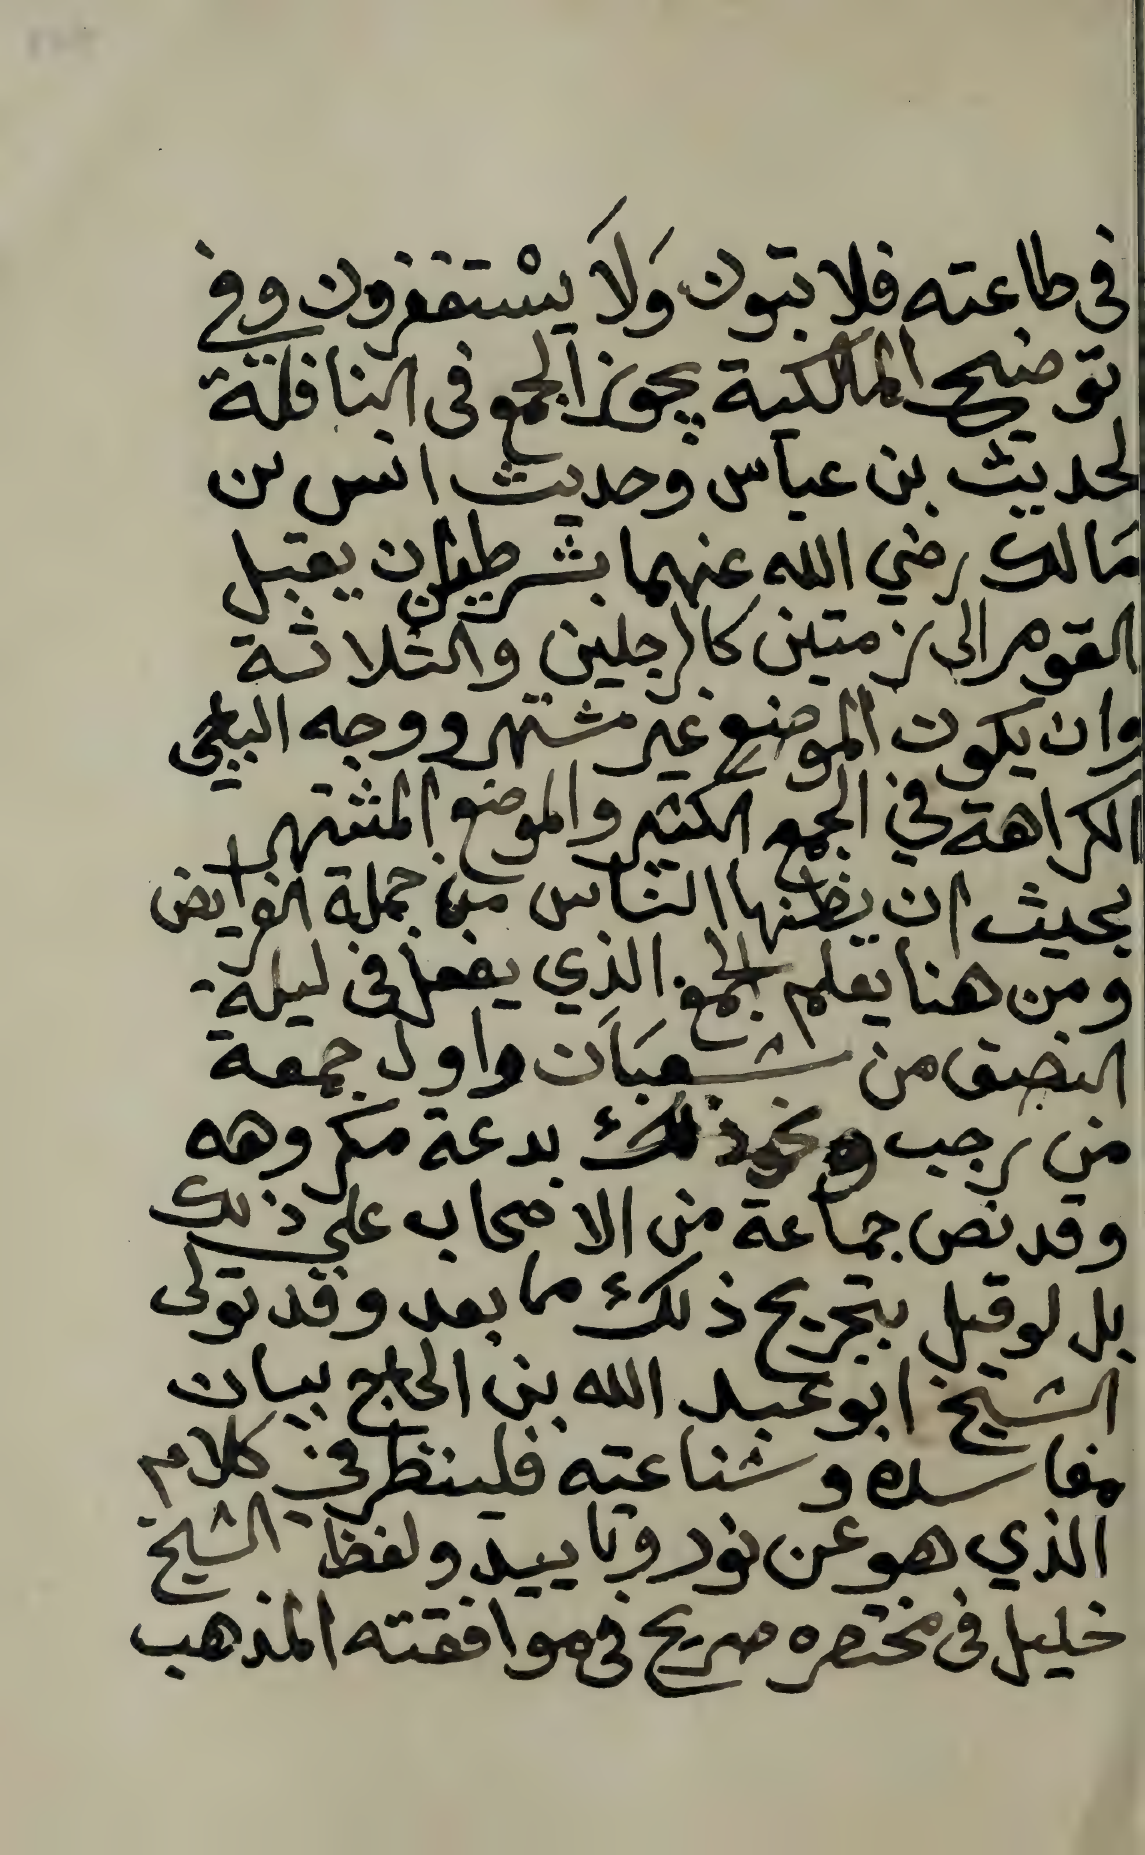 في طاعته فلا يتوبون وَلاَ يسْتغفرون وفي
توضيح المالكية يجوز الجمع في النافلة
لحديث بن عباس وحديث انس بن
مَالك رضي الله عنهما بشرطين ان يقبل
القوم الى زمتين كالرجلين والثلاثة
وان يكون الموضع غير مشتهر ووجه الباجي
الكراهة في الجمع الكثير والموضع المشتهر
بحيث ان يظنها الناس من جملة الفرايض
ومن هنا يعلم الجمع الذي يفعل في ليلة
النصف من شعبَان واول جمعة
من رجب ونحو ذلك بدعة مكروهه
وقد نص جماعة من الاصحاب على ذلك
بل لو قيل بتحريم ذلك ما بعد وقد تولى
الشيخ ابو عبد الله بن الحاج بيان
مفاسده وشناعته فلينظر في كلام
الذي هو عن نور وتاييد ولفظ الشيخ
خليل في مختصره صريح في موافقته المذهب